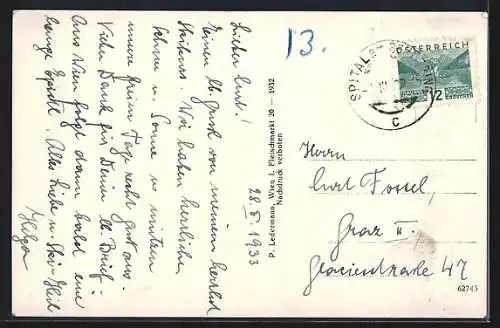 Lieber Curt!
Einen lb. Gruß von meinem herrlichen
Wir haben herrlichen
Schnee u. Sonne u. nützen
unsere freien Tage recht gut aus.
Vielen Dank für Deinen lb. Brief.
Aus Wien folgt dann bald eine
lange Epistel. Alles Liebe u. Ski-Heil
Helga
28.II.1933
P. Ledermann, Wien I. Fleischmarkt 20 — 1932
Nachdruck verboten
13.
SPITAL
C
ÖSTERREICH
12
Herrn
Curt Fossel,
Graz II.
Glacisstraße 47
62745